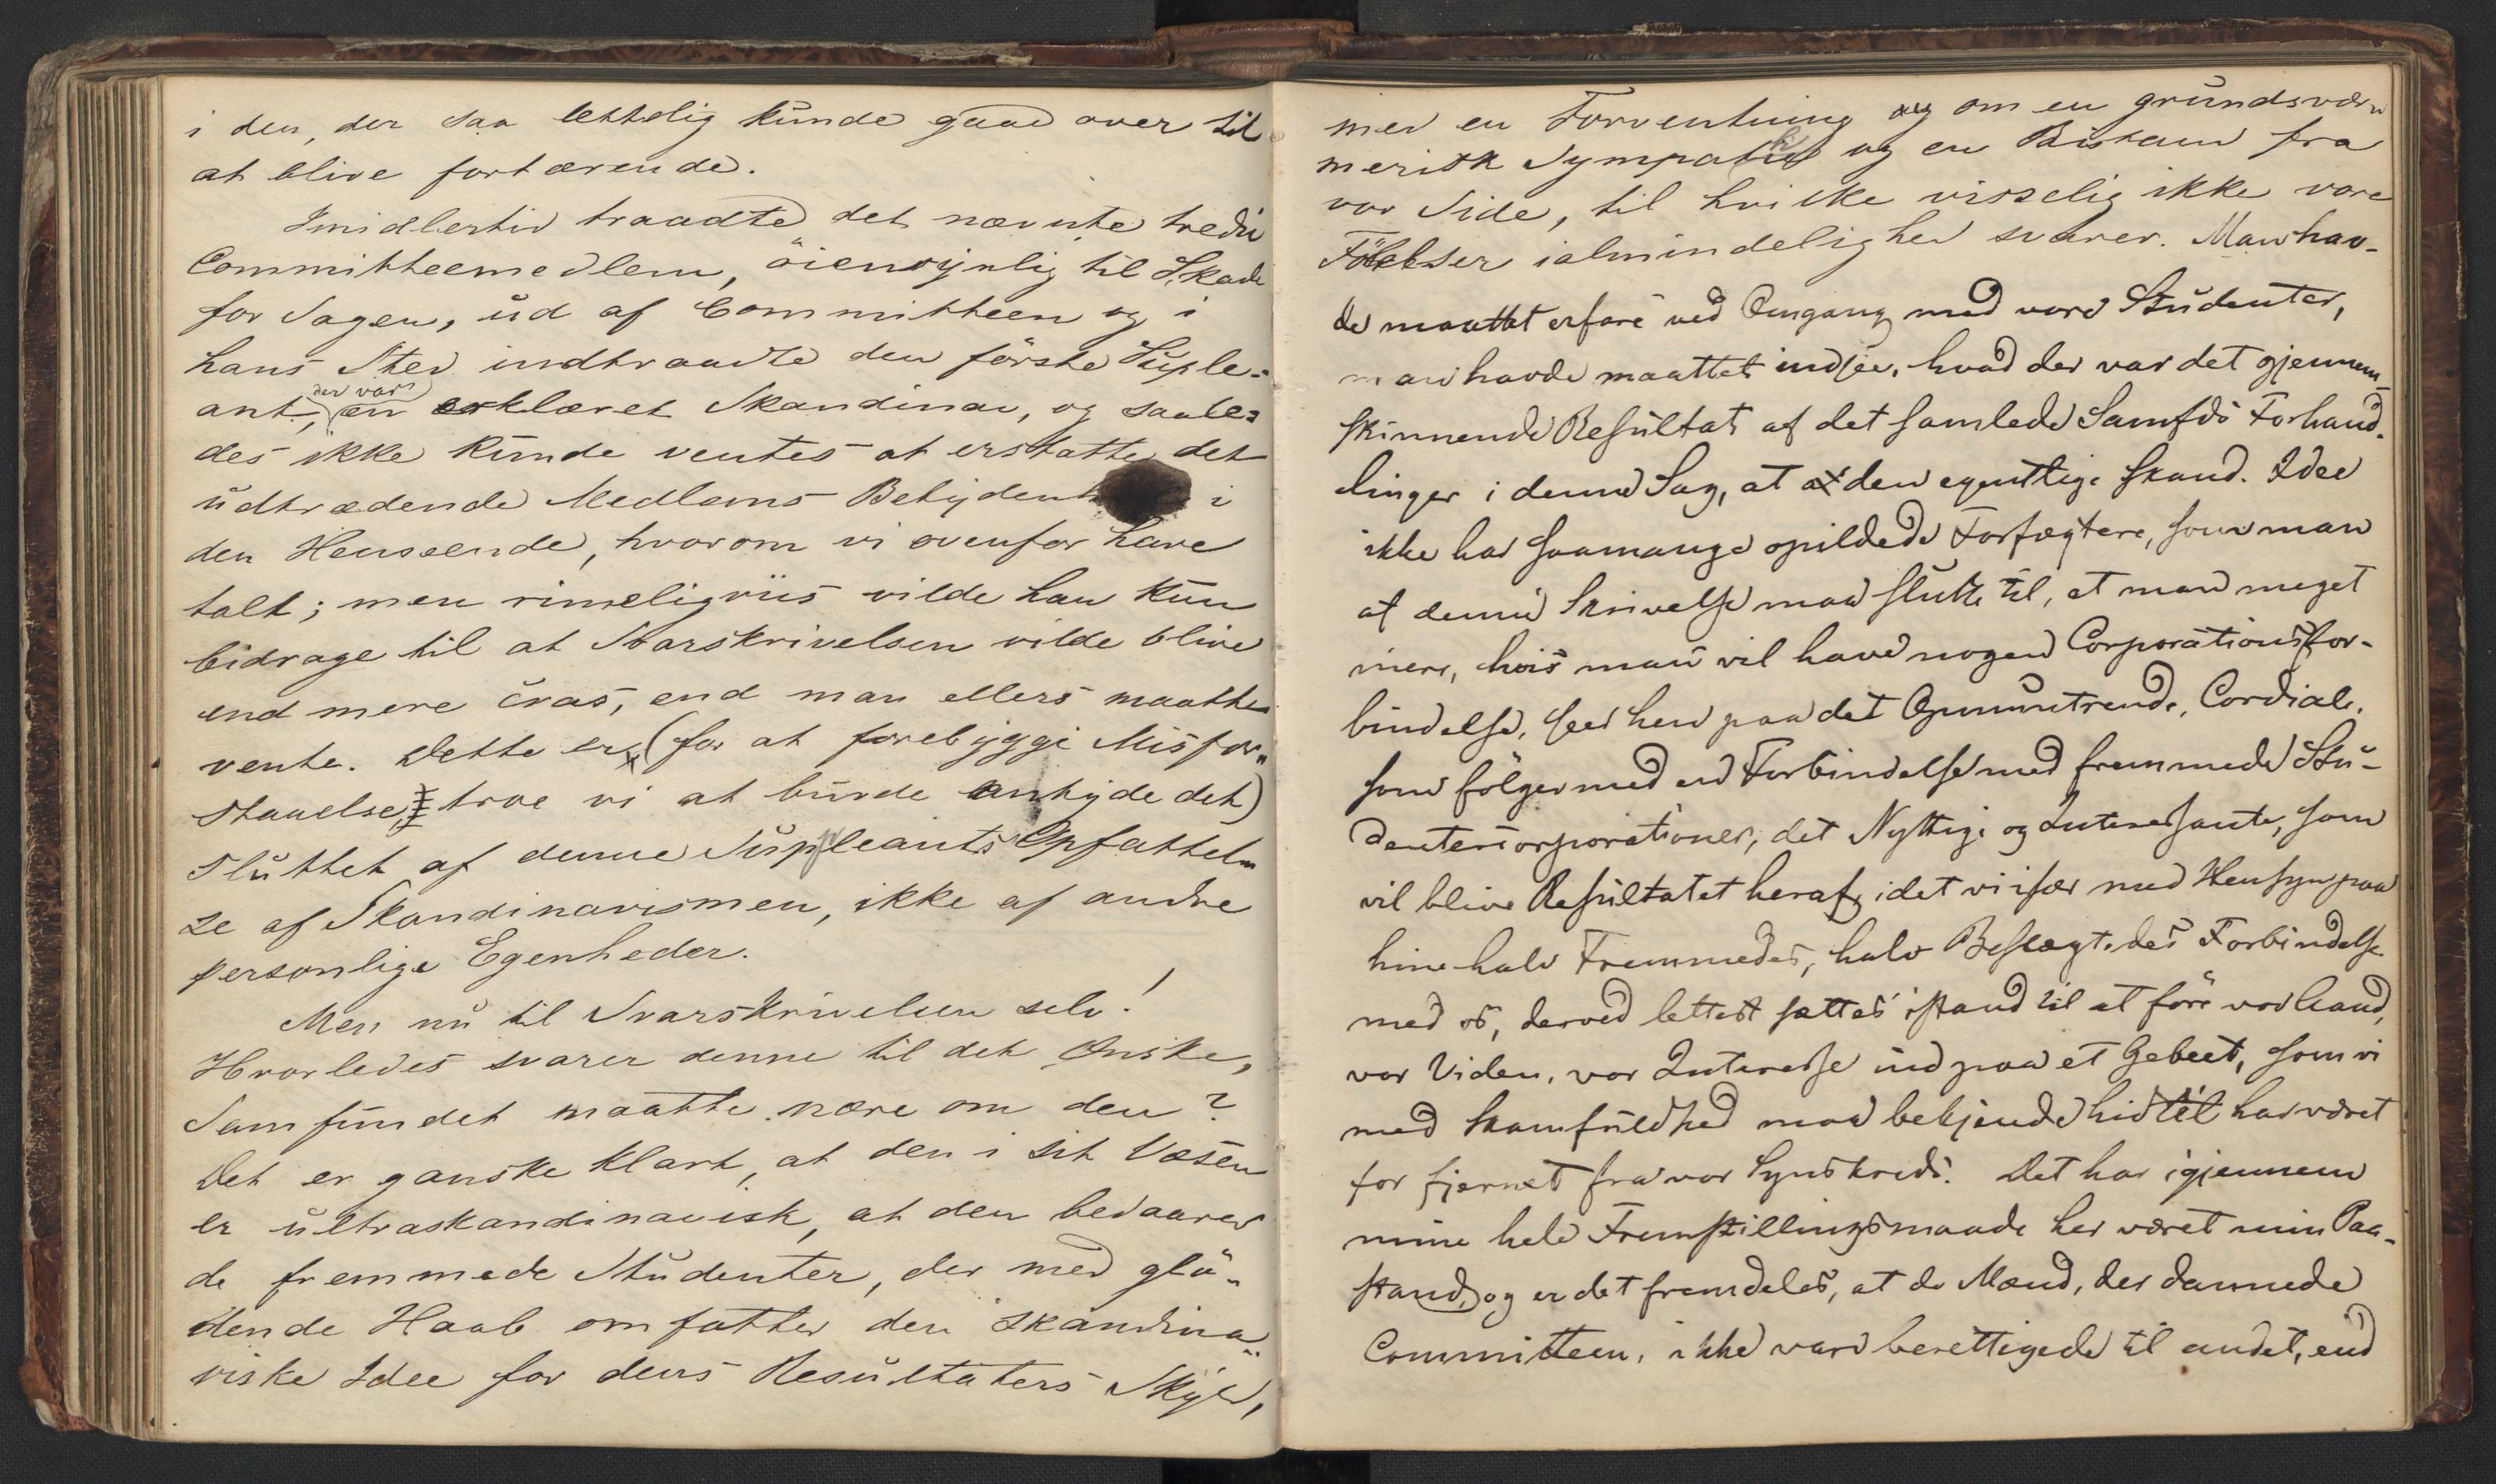 i den, der saa lettelig kunde gaae over til
at blive fortærende.
Imidlertid traadte det nævnte tredie
Committeemedlem, öiensynlig til Skade
for Sagen, ud af Committeen og i
hans Sted indtraadte den förste Suple-
der var
ant, en erklæret Skandinav, og saale-
des ikke kunde ventes at erstatte det
udtrædende Medlems Betydenh i
den Henseende, hvorom vi ovenfor have
talt; men rimeligviis vilde han kun
bidrage til at Svarskrivelsen vilde blive
end mere cras, end man ellers maatte
vente. Dette er (for at forebygge Misfor-
staaelse, troe vi at burde antyde det)
sluttet af denne Suppleants Opfattel-
se af Skandinavismen, ikke af andre
personlige Egenheder.
Men nu til Svarskrivelsen selv!
Hvorledes svarer denne til det Ønske,
Samfundet maatte nære om den?
Det er ganske klart, at den i sit Væsen
er ultraskandinavisk, at den bedaarer
de fremmede Studenter, der med glö-
dende Haab omfatter den skandina-
viske Idee for dens Resultaters Skyld,
med en Forventning om en grundsvær-
merisk Sympathi og en Bistand fra
vor Side, til hvilke visselig ikke vore
Fölelser ialmindelighed svarer. Man hav-
de maattet erfare ved Omgang med vore Studenter,
man havde maattet indsee, hvad der var det gjennem-
skinnende Resultat af det samlede Samfds Forhand-
linger i denne Sag, at den egentlige skand. Idee
ikke har saamange opildede Forfægtere, som man
af denne Skrivelse maa slutte til, at man meget
mere, hvis man vil have nogen Corporationsfor-
bindelse, seer hen paa det Opmuntrende, Cordiale,
som fölger med en Forbindelse med fremmede Stu-
dentercorporationer, det Nyttige og Interessante, som
vil blive Resultatet heraf, idet vi især med Hensyn paa
hine halv Fremmedes, halv Beslægtedes Forbindelse
med os, derved lettest sættes istand til at före vor Aand,
vor Viden, vor Interesse ind paa et Gebeet, som vi
med Skamfuldhed maa bekjende hidtil har været
for fjernet fra vor Synskreds. Det har igjennem
mine hele Fremstillingsmaade her været min Paa-
stand, og er det fremdeles, at de Mænd, der dannede
Committeen, ikke vare berettigede til andet, end